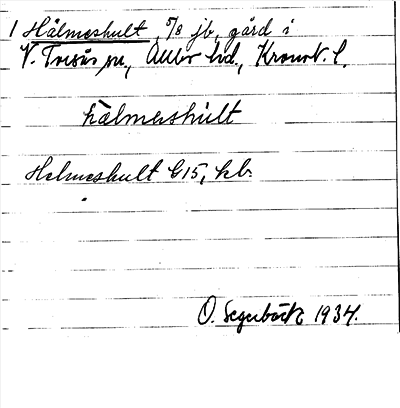 1 Hålmeshult, 5/8 jb, gård i
V. Torsås sn, Allbo hd., Kronob. l.
hälmershult
Helmeshult G15, kb.
O. Segerbäck 1934.